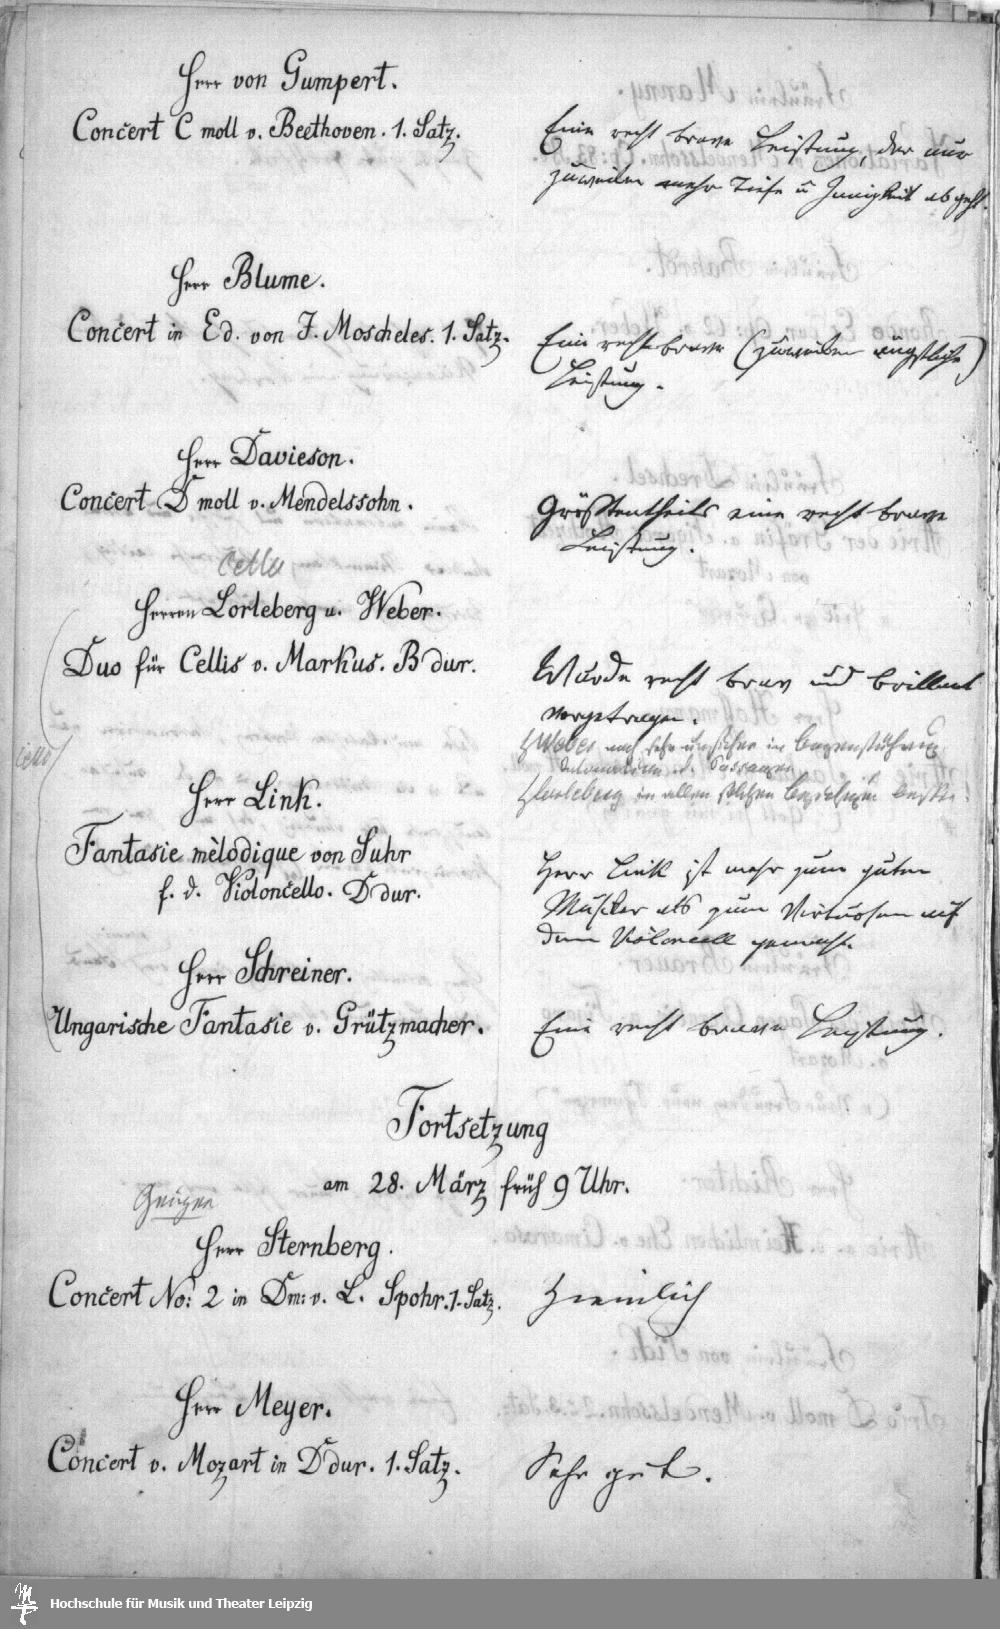 Herr von Gumpert.
Concert C moll v. Beethoven. 1. Satz.
Eine recht brave Leistung, der nur
zuweilen mehr Tiefe u Innigkeit abgeht.
Herr Blume.
Concert in Es d. von J. Moscheles. 1. Satz.
Eine recht brave (zuweilen ängstliche)
Leistung.
Herr Davieson.
Concert D moll v. Mendelssohn.
Größtentheils eine recht brave
Leistung.
Cello
Herren Lorleberg u. Weber.
Duo für Cellis v. Markus. B dur.
Wurde recht brav und brillant
vorgetragen.
Weber noch sehr unsicher in Bogenführung
Intonation u. d. Passagen
Lorleberg in allen solchen
Cello
Herr Link.
Fantasie mèlodique von Suhr
f. d. Violoncello. D dur.
Herr Link ist mehr zum guten
Musiker als zum Virtuosen auf
dem Violoncell gemacht.
Herr Schreiner.
Ungarische Fantasie v. Grützmacher.
Eine recht brave Leistung.
Fortsetzung
am 28. März früh 9 Uhr.
Geigen
Herr Sternberg.
Concert No: 2 in Dm: v. L. Spohr. 1. Satz.
Ziemlich
Herr Meyer.
Concert v. Mozart in D dur. 1. Satz.
Sehr gut.
Hochschule für Musik und Theater Leipzig